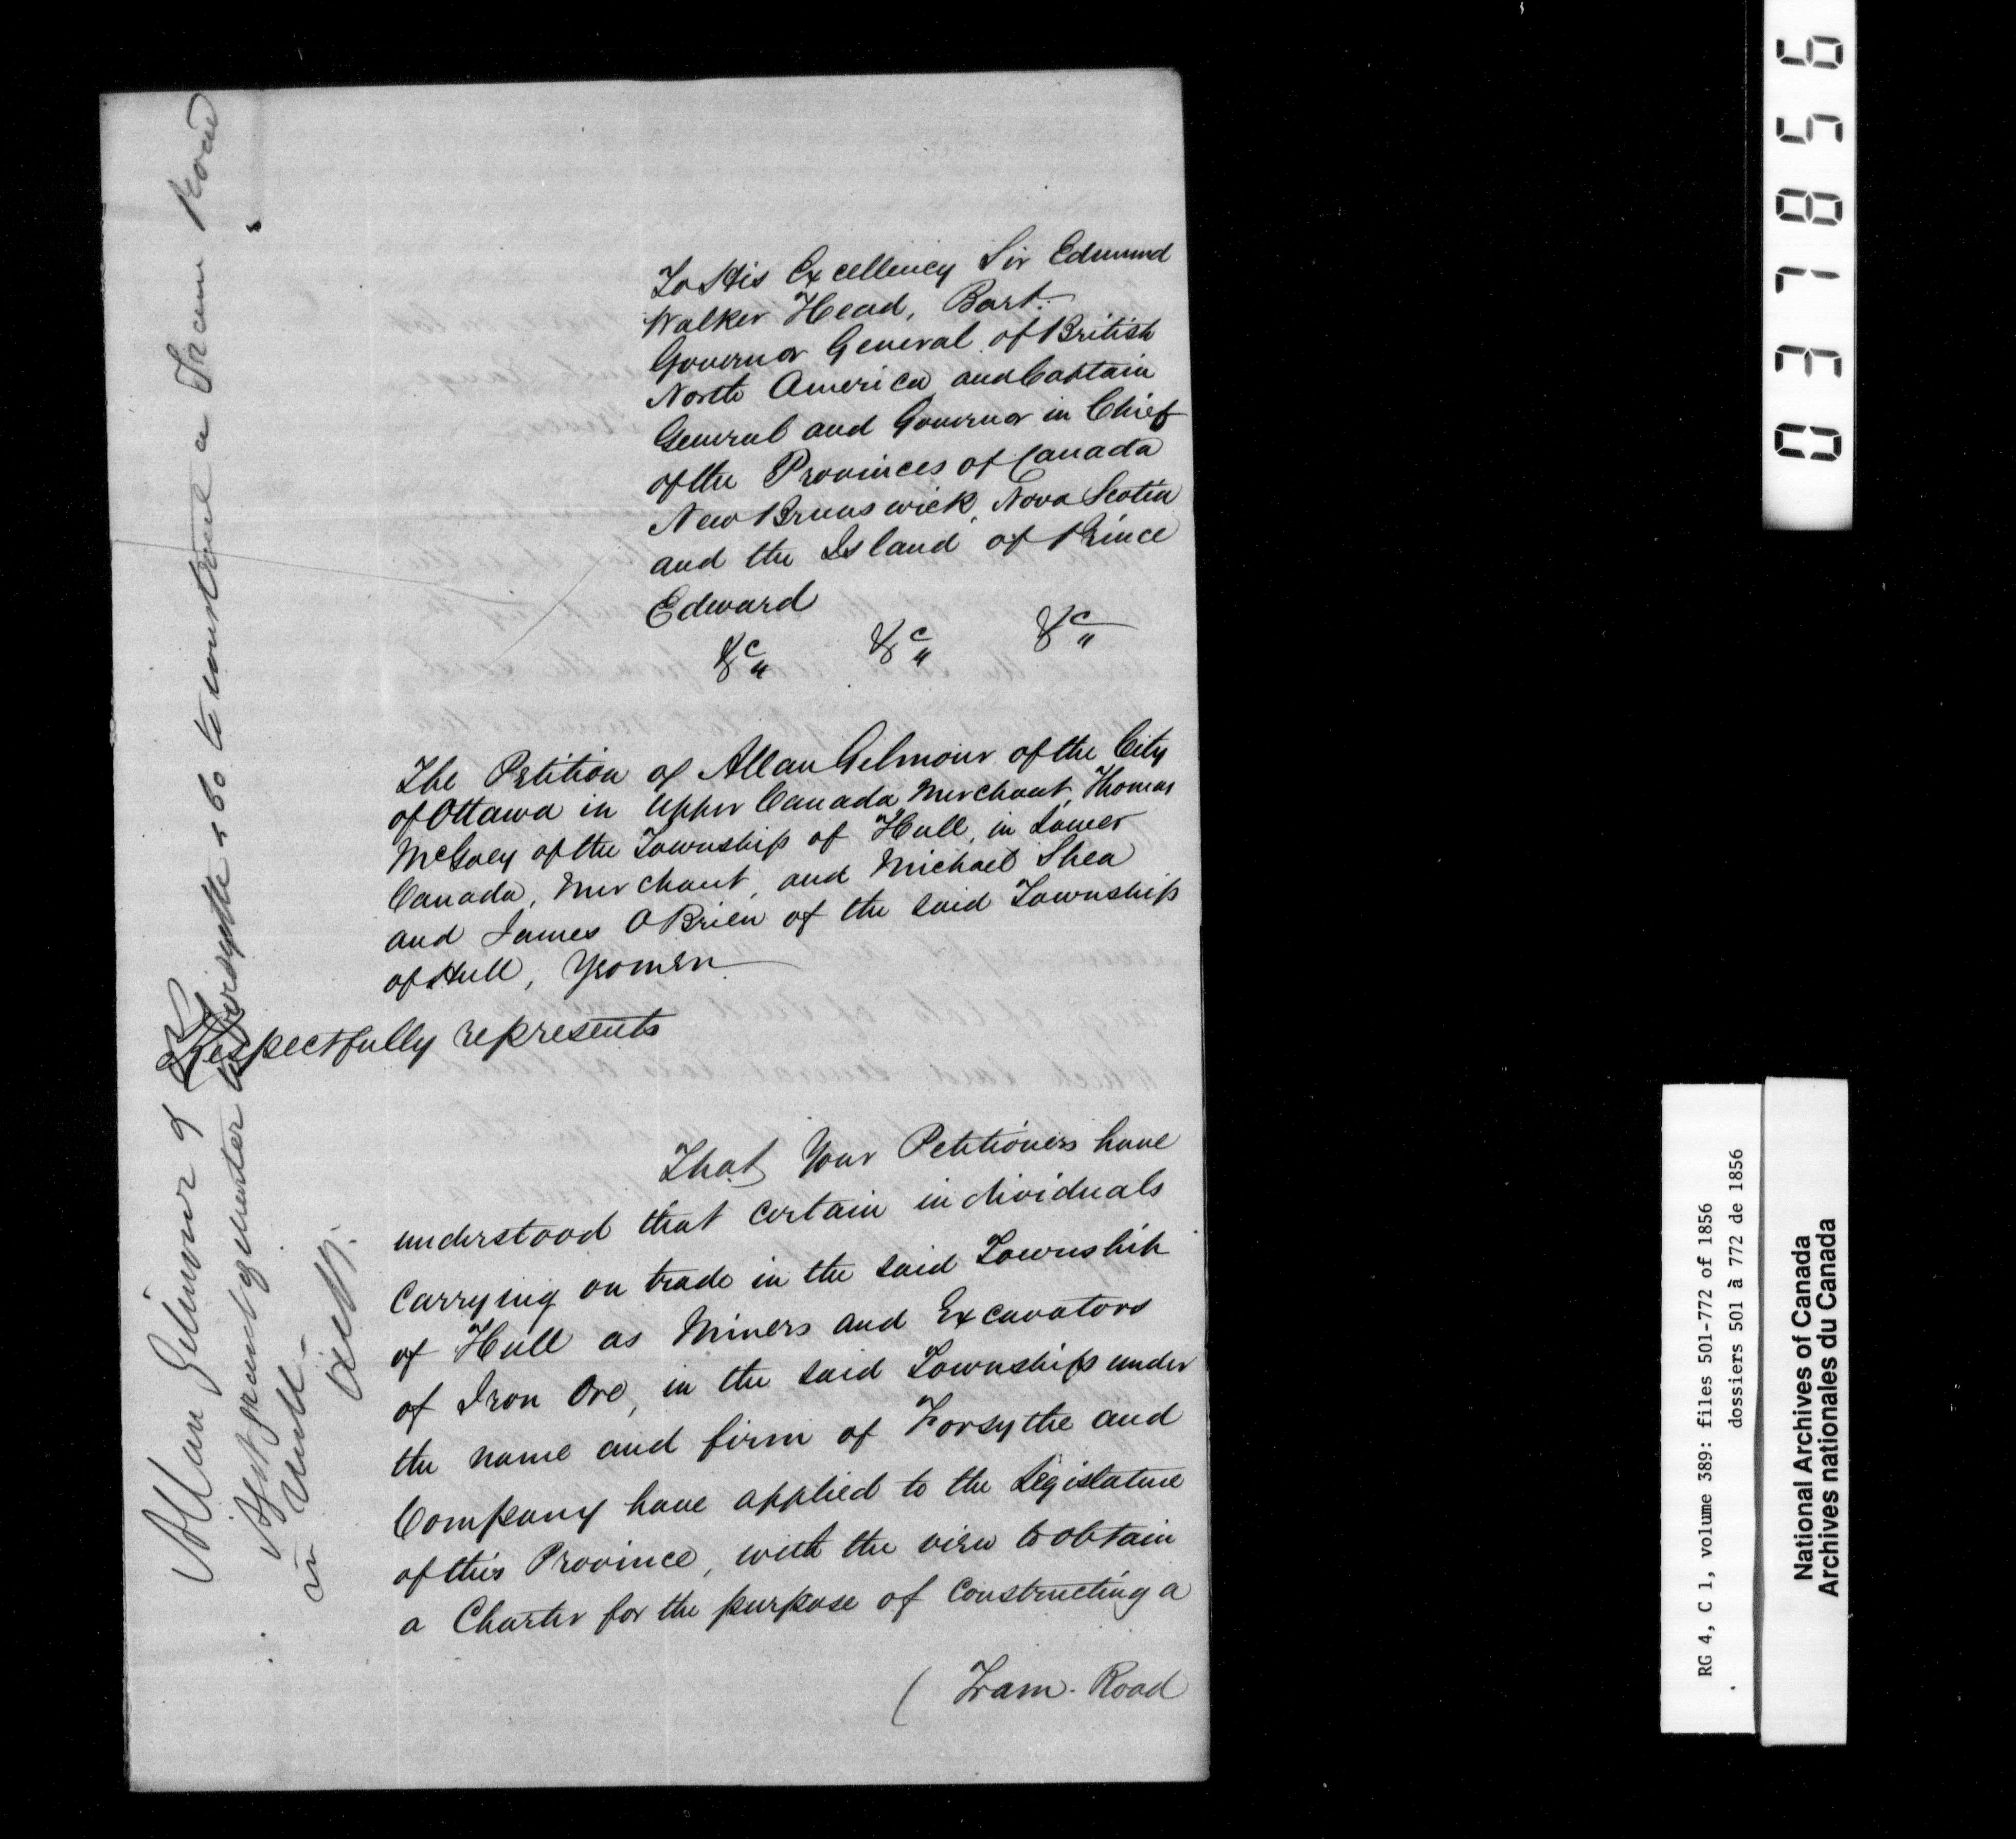 To His Excellency Sir Edmund
Walker Head, Bart.
Governor General of British
North America and Captain
General and Governor in Chief
of the Provinces of Canada
New Brunswick, Nova Scotia
and the Island of Prince
Edward
&c &c &c
The Petition of Allan Gilmour of the City
of Ottawa in Upper Canada Merchant, Thomas
McGoey of the Township of Hull, in Lower
Canada, Merchant, and Michael Shea
and James OBrien of the said Township
of Hull, Yeomen
Respectfully represents
That Your Petitioners have
understood that certain individuals
Carrying on trade in the said Township
of Hull as Miners and Excavators
of Iron Ore, in the said Township under
the name and firm of Forsythe and
Company have applied to the Legislature
of this Province, with the view to obtain
a Charter for the purpose of Constructing a
( Tram-Road
Allan Gilmour &
Agst grant of Charter to Forsythe & Co to construct a Tram Road
in Hull.
037856
RG 4, C 1, volume 389: files 501-772 of 1856
dossiers 501 à 772 de 1856
National Archives of Canada
Archives nationales du Canada